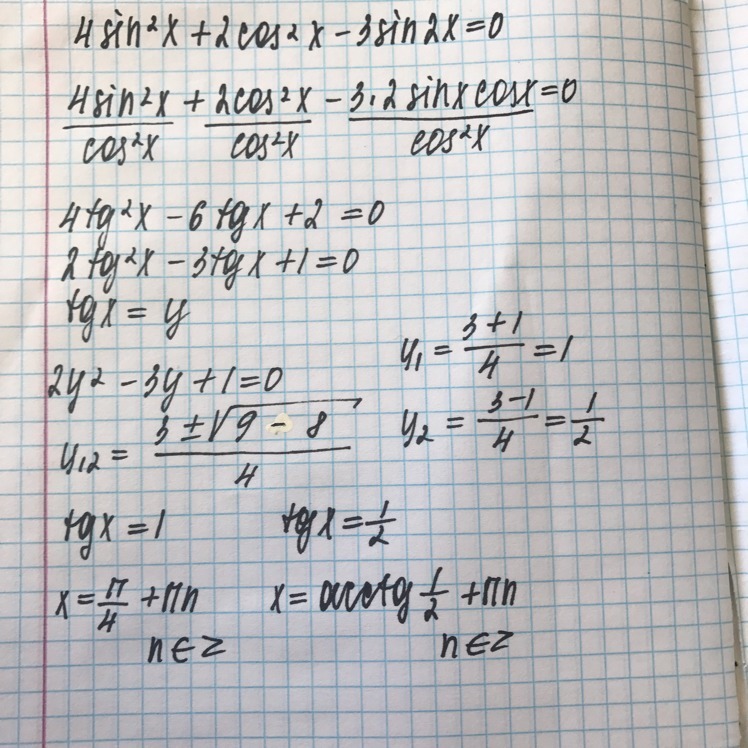 4sin²x + 2cos²x − 3sin2x = 0
4sin²x/cos²x + 2cos²x/cos²x − 3·2sinxcosx/cos²x = 0
4tg²x − 6tgx + 2 = 0
2tg²x − 3tgx + 1 = 0
tgx = y
2y² − 3y + 1 = 0
y₁₂ = (3 ± √(9 − 8))/4
y₁ = (3+1)/4 = 1
y₂ = (3−1)/4 = 1/2
tgx = 1 tgx = 1/2
x = π/4 + πn x = arctg 1/2 + πn
n ∈ Z n ∈ Z